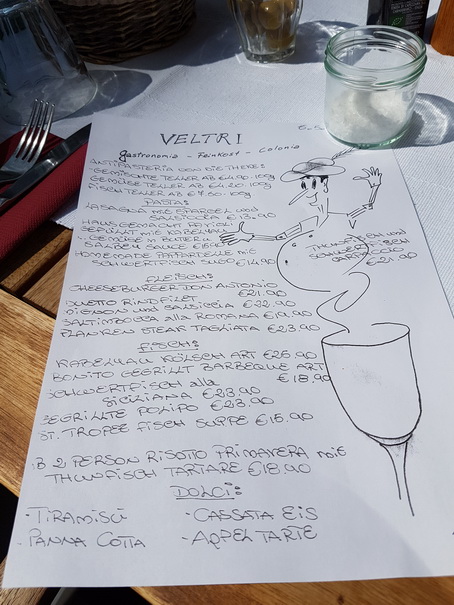 VELTRI
Gastronomia - Feinkost - Colonia
ANTIPASTERIA VON DIE THEKE:
-GEMISCHTE TELLER AB €4.90-100g
GEMÜSE TELLER AB €4.20-100g
FISCH TELLER AB €7.50-100g
PASTA:
LASAGNA MIT SPARGEL UND
SALSICCIA €13.90
HAUSGEMACHT
GEFÜLLT MIT KABELJAU
-GEMÜSE IN BUTTER
SALBEI SAUCE
HOMEMADE PAPPARDELLE MIT
SCHWERTFISCH SUGO €14.90
THUNFISCH UND
SCHWERT
€21.90
FLEISCH:
CHEESEBURGER DON ANTONIO
€21.90
DUETTO RINDFILET
MEDIGON UND SALSICCIA €22.90
SALTIMBOCCA alla ROMANA €19.90
FLANKEN STEAK TAGLIATA €23.90
FISCH:
KABELJAU KÖLSCH ART €26.90
BONITO GEGRILLT BARBEQUE ART
€18.90
SCHWERTFISCH alla
SICILIANA €23.90
GEGRILLTE POLIPO €23.90
ST. TROPEE FISCH SUPPE €15.90
AB 2 PERSON RISOTTO PRIMAVERA MIT
THUNFISCH TARTARE €18.90
DOLCI:
-TIRAMISÙ
-CASSATA EIS
-PANNA COTTA
-APPELTARTE